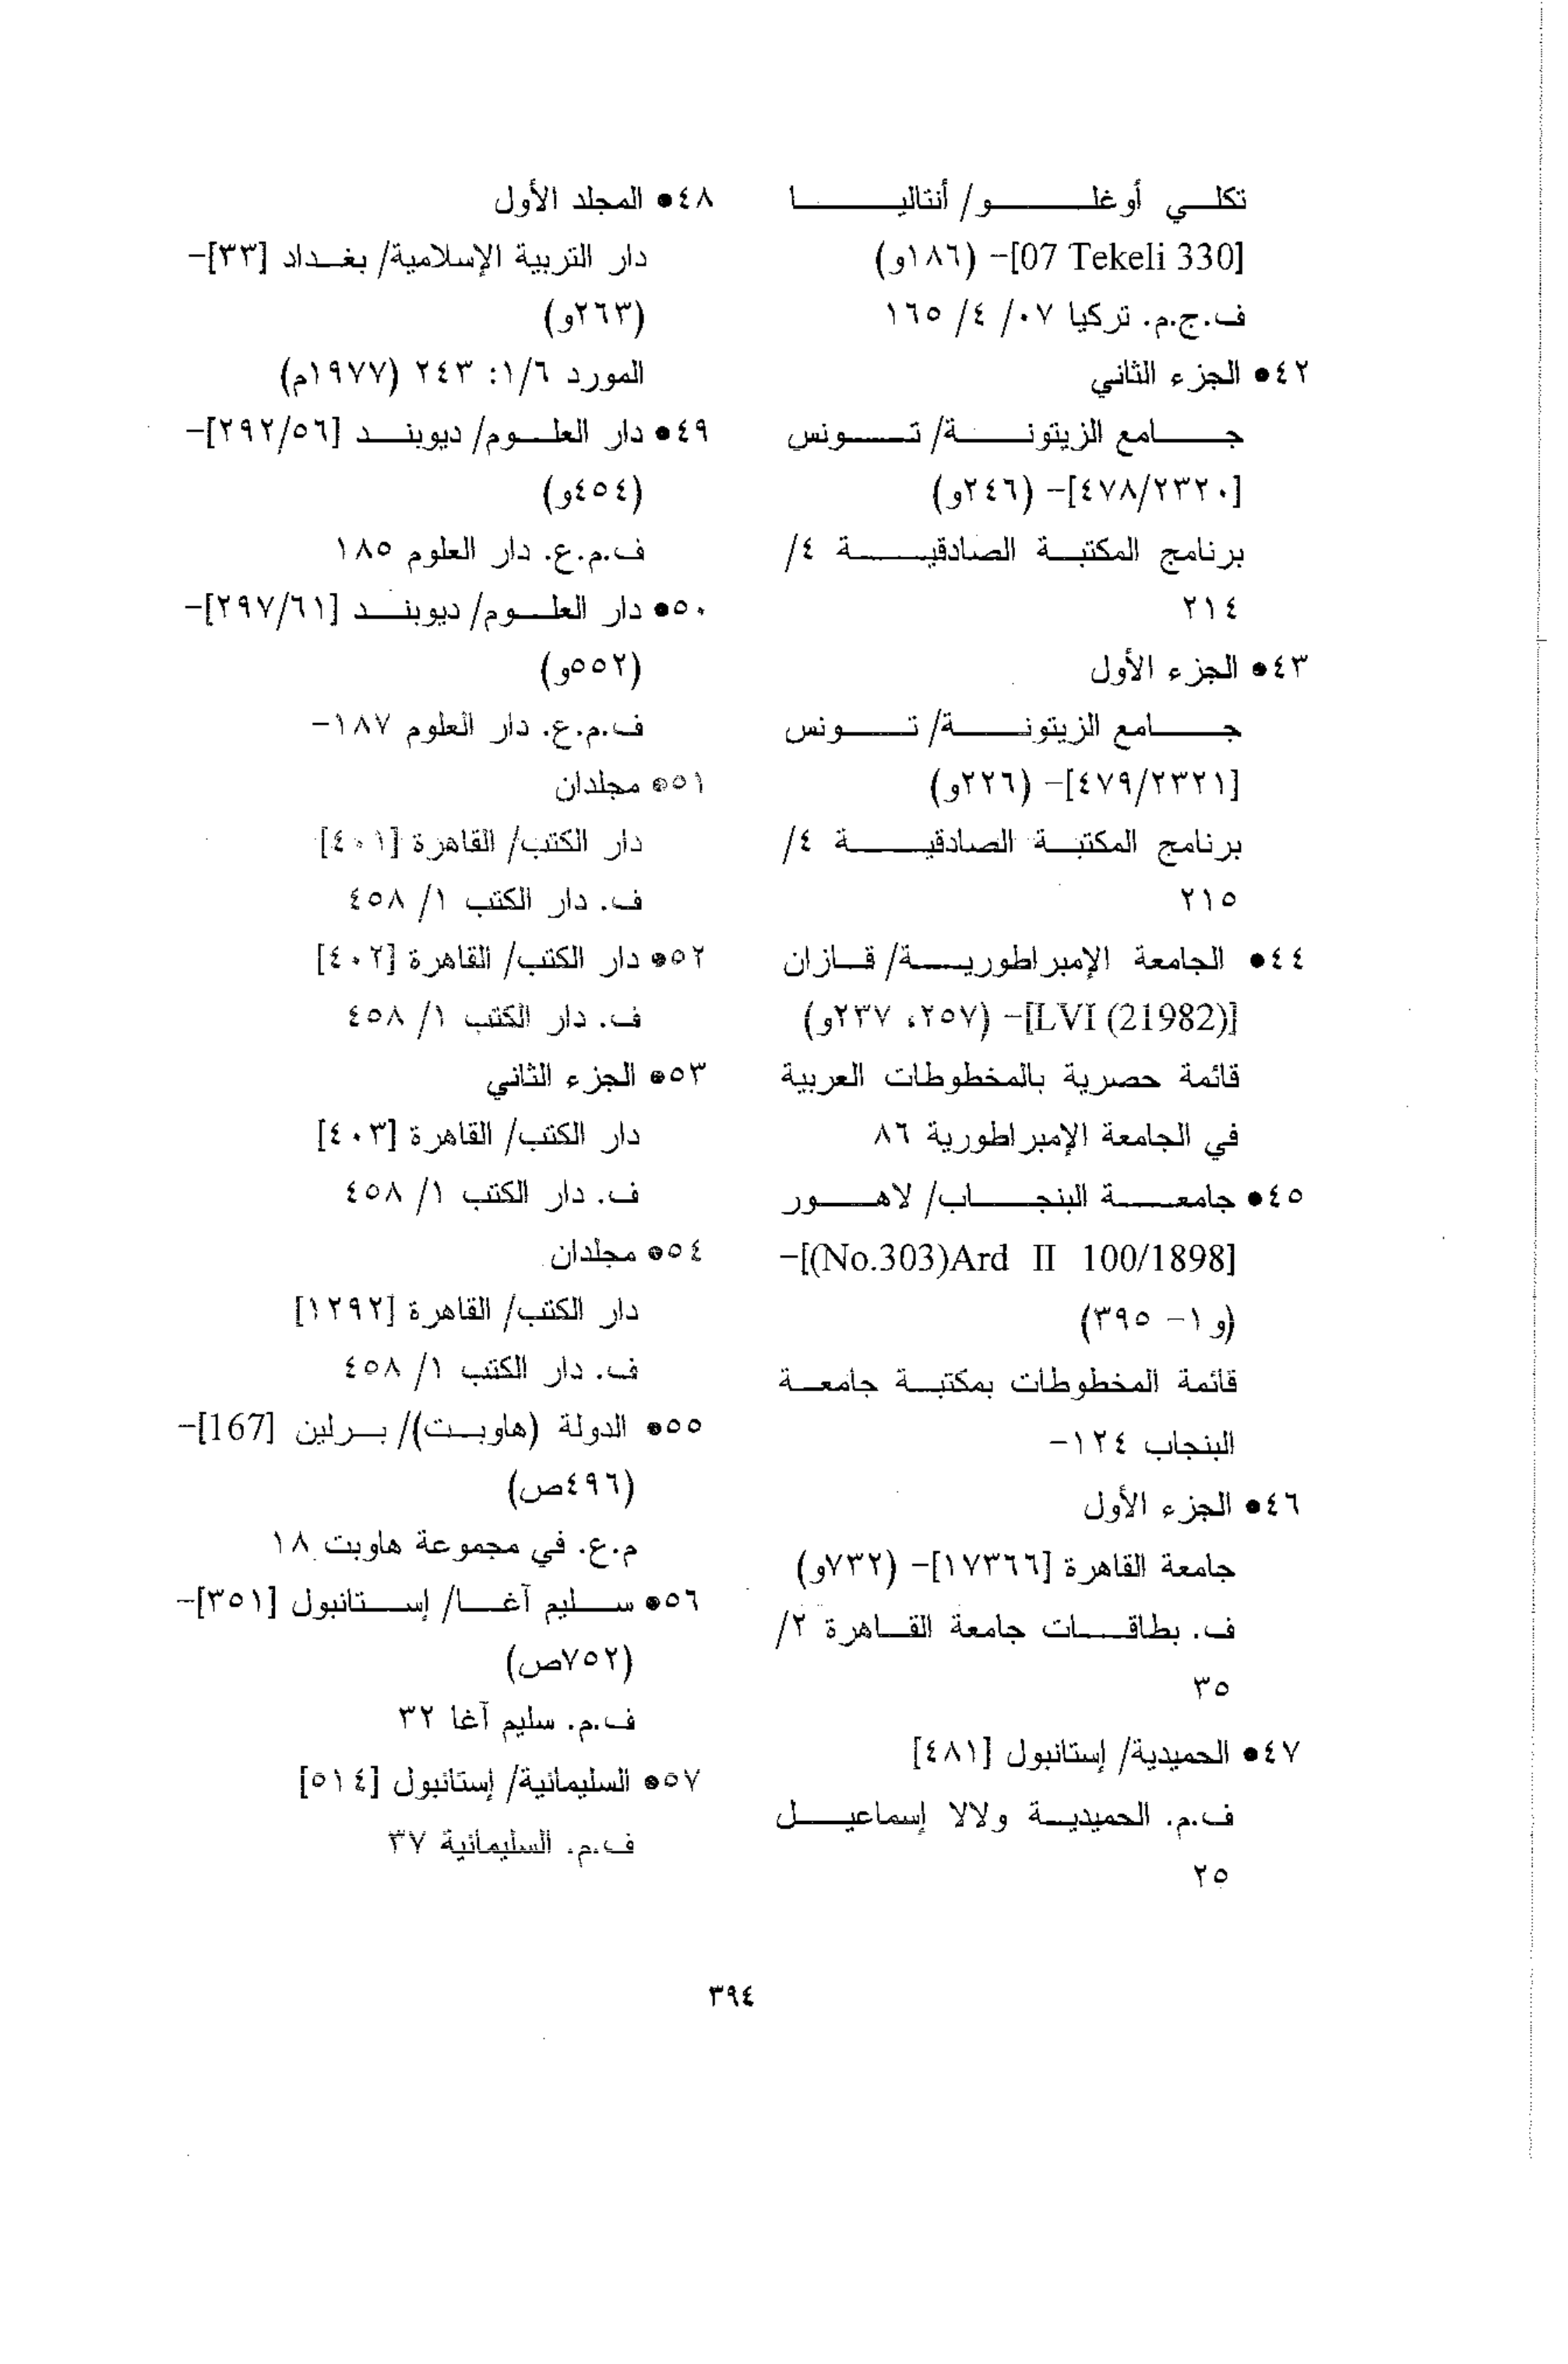 تكلي أوغلو/ أنتاليا
[07 Tekeli 330]- (١٨٦و)
ف.ج.م. تركيا ٠٧/ ٤/ ١٦٥
٤٢● الجزء الثاني
جامع الزيتونة/ تونس
[٤٧٨/٢٣٢٠]- (٢٤٦و)
برنامج المكتبة الصادقية ٤/
٢١٤
٤٣● الجزء الأول
جامع الزيتونة/ تونس
[٤٧٩/٢٣٢١]- (٢٢٦و)
برنامج المكتبة الصادقية ٤/
٢١٥
٤٤● الجامعة الإمبراطورية/ قازان
[LVI (21982)]- (٢٥٧، ٢٣٧و)
قائمة حصرية بالمخطوطات العربية
في الجامعة الإمبراطورية ٨٦
٤٥● جامعة البنجاب/ لاهور
[(No.303)Ard II 100/1898]-
(و١- ٣٩٥)
قائمة المخطوطات بمكتبة جامعة
البنجاب ١٢٤-
٤٦● الجزء الأول
جامعة القاهرة [١٧٣٦٦]- (٧٣٢و)
ف. بطاقات جامعة القاهرة ٢/
٣٥
٤٧● الحميدية/ إستانبول [٤٨١]
ف.م. الحميدية ولالا إسماعيل
٢٥
٤٨● المجلد الأول
دار التربية الإسلامية/ بغداد [٣٣]-
(٢٦٣و)
المورد ١/٦: ٢٤٣ (١٩٧٧م)
٤٩● دار العلوم/ ديوبند [٢٩٢/٥٦]-
(٤٥٤و)
ف.م.ع. دار العلوم ١٨٥
٥٠● دار العلوم/ ديوبند [٢٩٧/٦١]-
(٥٥٢و)
ف.م.ع. دار العلوم ١٨٧-
٥١● مجلدان
دار الكتب/ القاهرة [٤٠١]
ف. دار الكتب ١/ ٤٥٨
٥٢● دار الكتب/ القاهرة [٤٠٢]
ف. دار الكتب ١/ ٤٥٨
٥٣● الجزء الثاني
دار الكتب/ القاهرة [٤٠٣]
ف. دار الكتب ١/ ٤٥٨
٥٤● مجلدان
دار الكتب/ القاهرة [١٢٩٢]
ف. دار الكتب ١/ ٤٥٨
٥٥● الدولة (هاوبت)/ برلين [167]-
(٤٩٦ص)
م.ع. في مجموعة هاوبت ١٨
٥٦● سليم آغا/ إستانبول [٣٥١]-
(٧٥٢ص)
ف.م. سليم آغا ٣٢
٥٧● السليمانية/ إستانبول [٥١٤]
ف.م. السليمانية ٣٧
٣٩٤